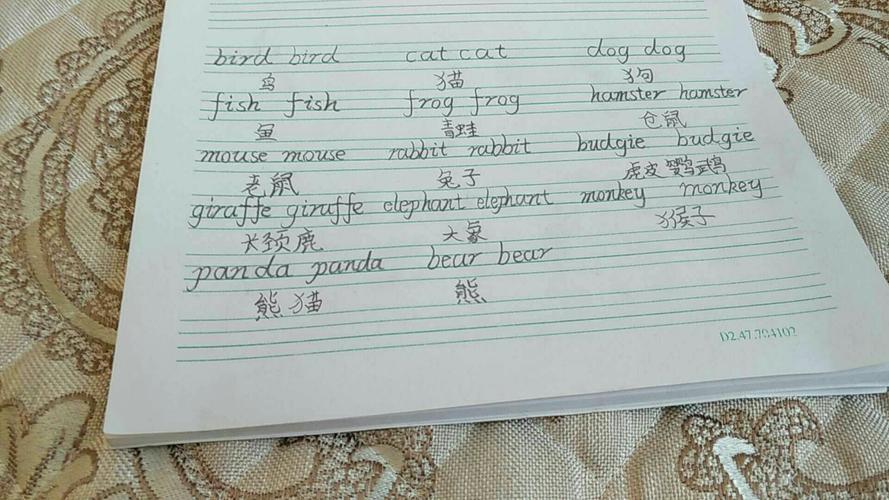 bird bird cat cat dog dog
鸟 猫 狗
fish fish frog frog hamster hamster
鱼 青蛙 仓鼠
mouse mouse rabbit rabbit budgie budgie
老鼠 兔子 虎皮鹦鹉
giraffe giraffe elephant elephant monkey monkey
长颈鹿 大象 猴子
panda panda bear bear
熊猫 熊
D2.47.794102